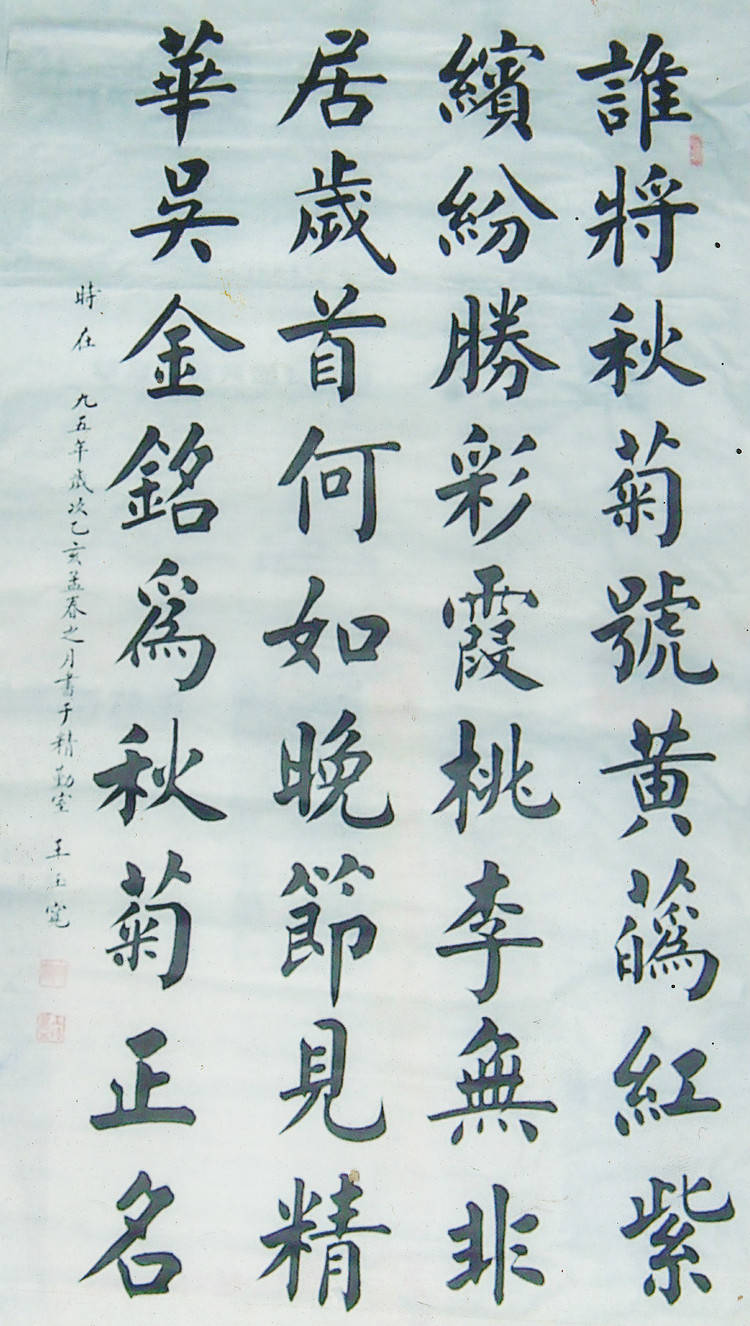 誰將秋菊號黄蘤紅紫
繽紛勝彩霞桃李無非
居歲首何如晚節見精
華吳金銘爲秋菊正名
時在 九五年歲次乙亥孟春之月書于精勤室 王玉寬